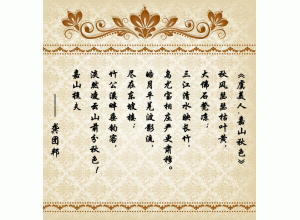 《虞美人 嘉山秋色》
秋风瑟瑟枯叶黄，
大佛石凳凉；
三江清水映长竹，
乌尤宝相庄严更肃穆。
皓月平羌波影流，
尽在东坡楼；
竹公溪畔垂钓客，
淡然凌云山前分秋色！
嘉山樵夫
——龚团邦